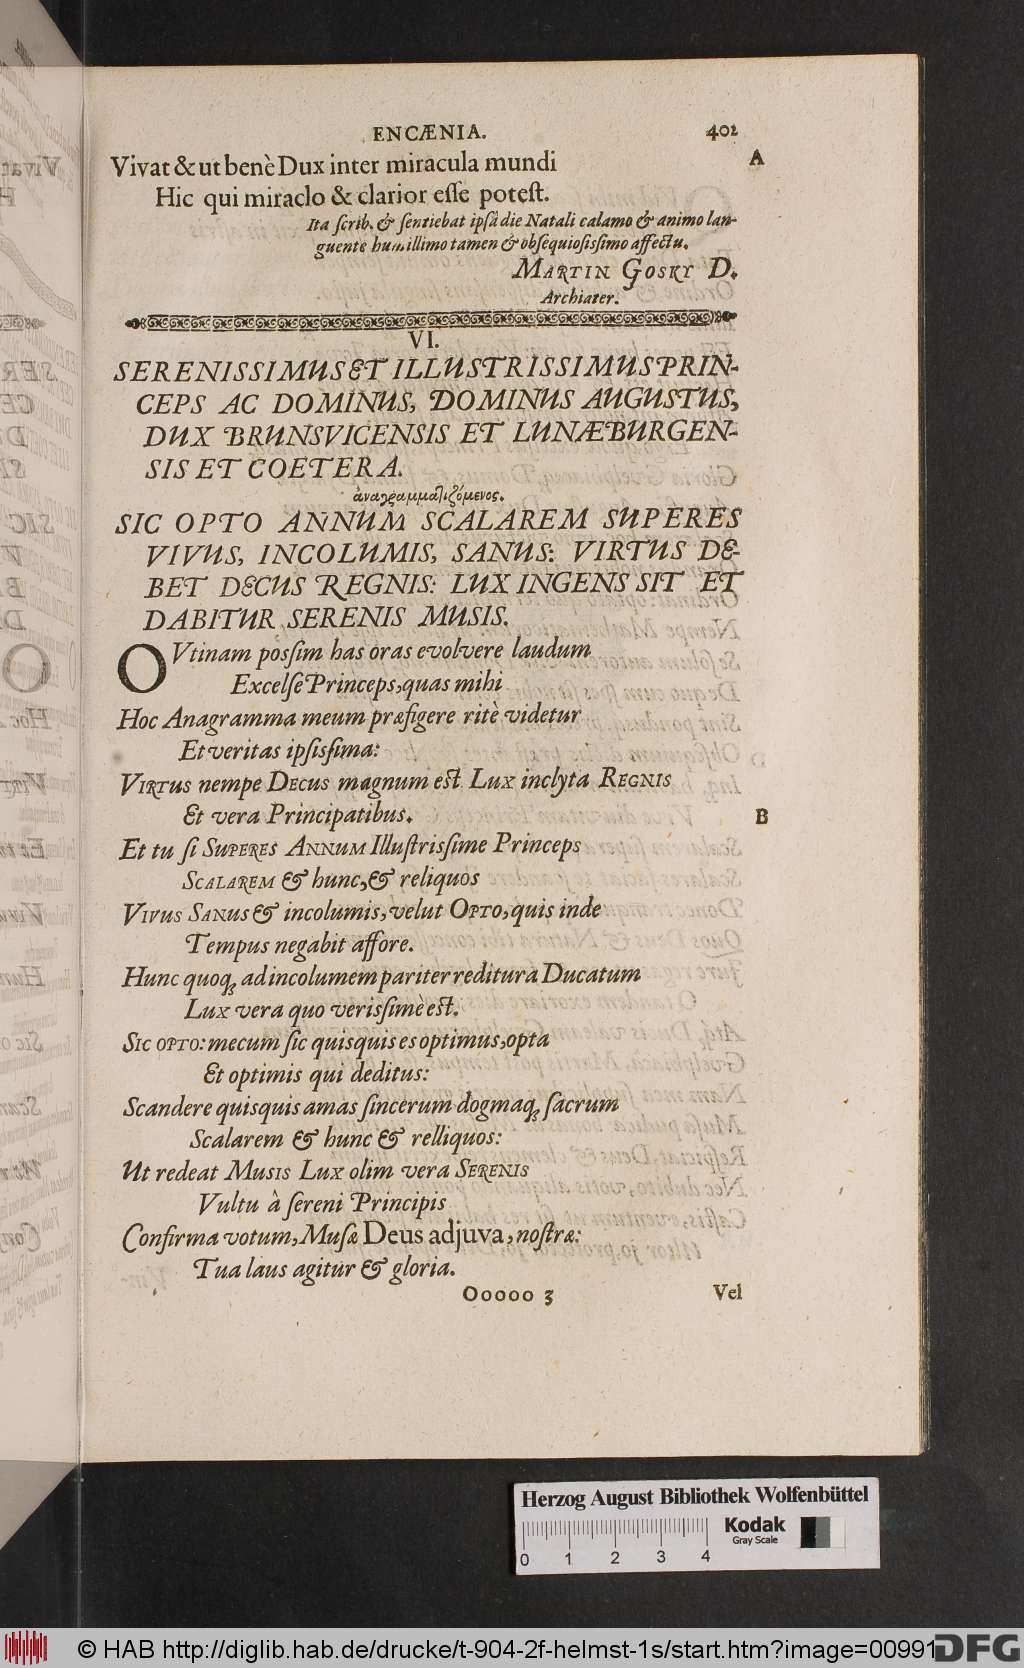 ENCÆNIA. 402
Vivat & ut benè Dux inter miracula mundi A
Hic qui miraclo & clarior esse potest.
Ita scrib. & sentiebat ipsâ die Natali calamo & animo lan-
guente humillimo tamen & obsequiosissimo affectu.
MARTIN GOSKY D.
Archiater.
VI.
SERENISSIMUS ET ILLUSTRISSIMUS PRIN-
CEPS AC DOMINUS, DOMINUS AUGUSTUS,
DUX BRUNSVICENSIS ET LUNÆBURGEN-
SIS ET COETERA.
ἀναγραμματιζόμενος.
SIC OPTO ANNUM SCALAREM SUPERES
VIVUS, INCOLUMIS, SANUS: VIRTUS DE-
BET DECUS REGNIS: LUX INGENS SIT ET
DABITUR SERENIS MUSIS.
OVtinam possim has oras evolvere laudum
Excelse Princeps, quas mihi
Hoc Anagramma meum præfigere ritè videtur
Et veritas ipsissima:
VIRTUS nempe DECUS magnum est LUX inclyta REGNIS
Et vera Principatibus. B
Et tu si SUPERES ANNUM Illustrissime Princeps
SCALAREM & hunc, & reliquos
VIVUS SANUS & incolumis, velut OPTO, quis inde
Tempus negabit affore.
Hunc quoq; ad incolumem pariter reditura Ducatum
LUX vera quo verissimè est.
SIC OPTO: mecum sic quisquis es optimus, opta
Et optimis qui deditus:
Scandere quisquis amas sincerum dogmaq; sacrum
Scalarem & hunc & relliquos:
Ut redeat MUSIS LUX olim vera SERENIS
Vultu à sereni Principis
Confirma votum, Musæ Deus adjuva, nostræ:
Tua laus agitur & gloria.
Ooooo 3 Vel
Herzog August Bibliothek Wolfenbüttel
0 1 2 3 4
Kodak
Gray Scale
© HAB http://diglib.hab.de/drucke/t-904-2f-helmst-1s/start.htm?image=00991
DFG